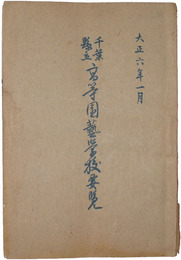 大正六年一月
千葉
縣立
高等園藝學校要覽